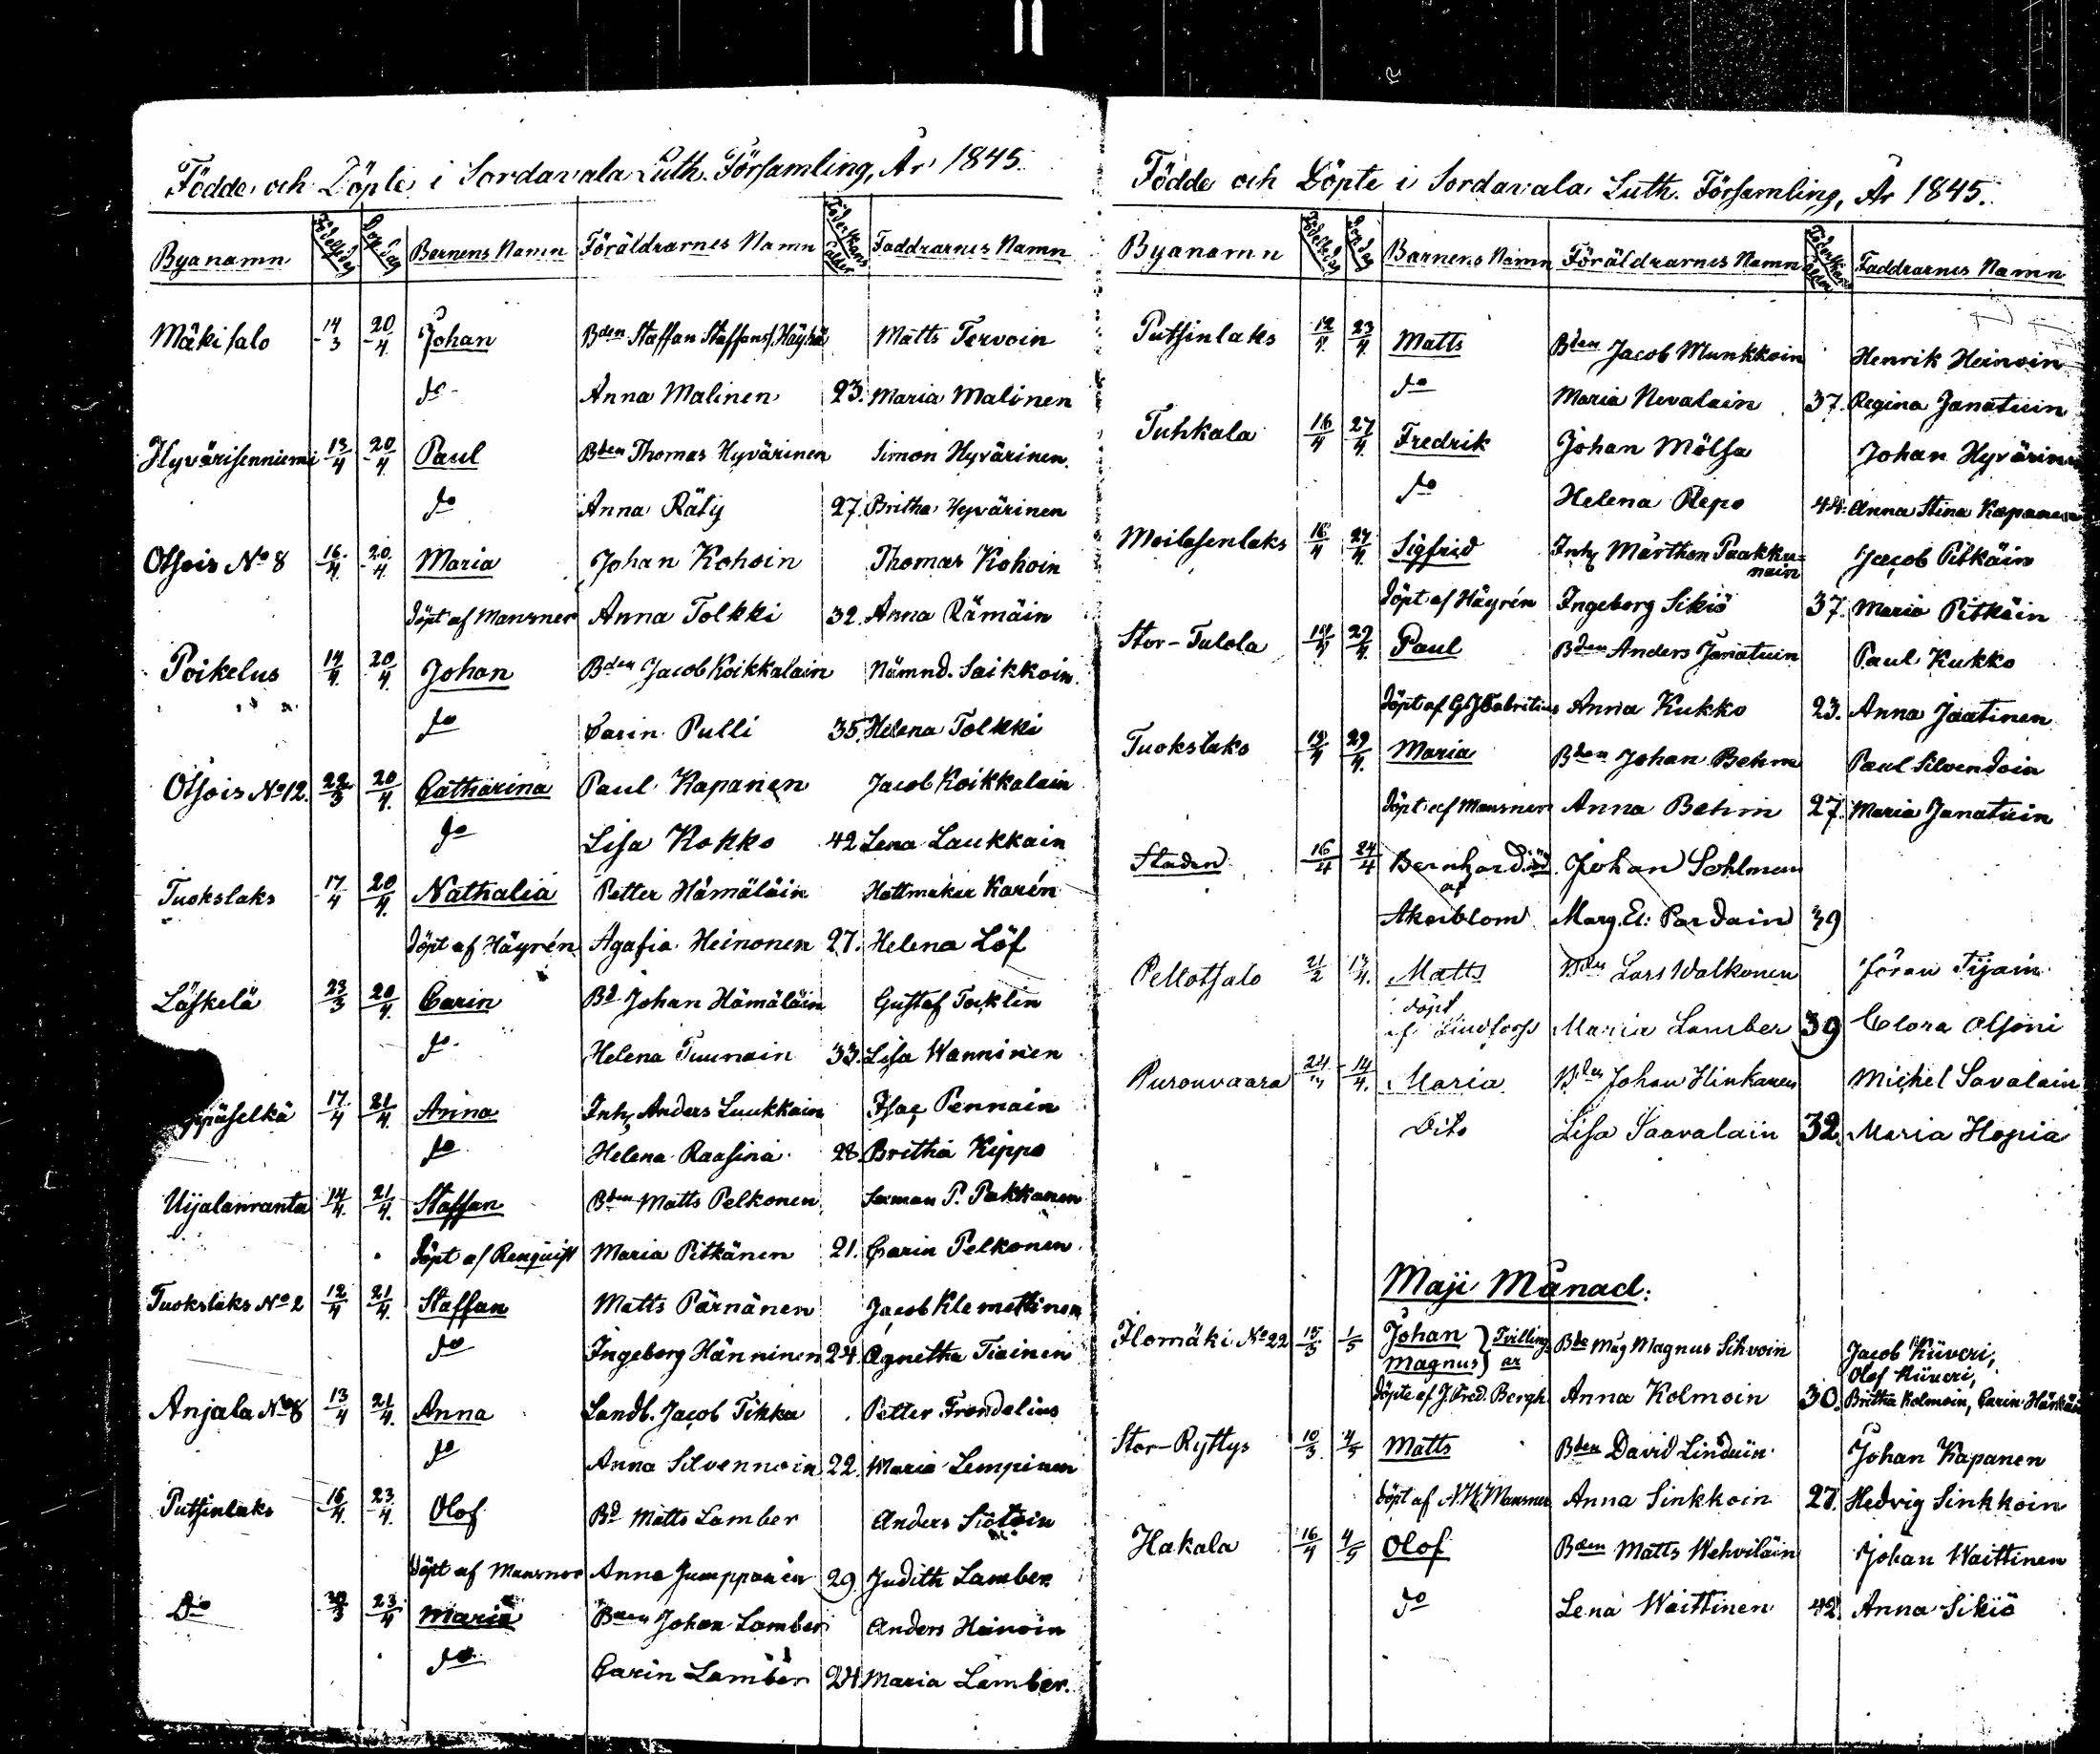 Födde och Döpte i Sordavala Luth. Församling, År 1845.
Byanamn Födelsedag Dopdag Barnens Namn Föräldrarnes Namn Föderskans ålder Faddrarnes Namn
Mäkisalo 14/3 20/4 Johan Bden Staffan Staffans. Häyhä Matts Tervoin
do Anna Malinen 23. Maria Malinen
Hyvärisenniemi 13/4 20/4 Paul Bden Thomas Hyvärinen Simon Hyvärinen
do Anna Räty 27. Britha Hyvärinen
Otsois No 8 16/4 20/4 Maria Johan Kohoin Thomas Kohoin
döpt af Mansner Anna Tolkki 32. Anna Rämäin
Poikelus 14/4 20/4 Johan Bden Jacob Koikkalain Nämnd. Saikkoin
do Carin Pulli 35. Helena Tolkki
Otsois No 12. 22/3 20/4 Catharina Paul Kapanen Jacob Koikkalain
do Lisa Kokko 42 Lena Laukkain
Tuokslaks 17/4 20/4 Nathalia Petter Hämäläin Hattmaker Karén
döpt af Häyrén Agafia Heinonen 27. Helena Löf
Läskelä 23/3 20/4 Carin Bd Johan Hämäläin Gustaf Tocklin
do Helena Tuunain 33. Lisa Wanninen
päselkä 17/4 21/4 Anna Inh. Anders Luukkain Isac Pennain
do Helena Raasina 28. Britha Kippo
Uijalanranta 14/4 21/4 Staffan Bden Matts Pelkonen P. Pakkanen
döpt af Renquist Maria Pitkänen 21. Carin Pelkonen
Tuokslaks No 2 12/4 21/4 Staffan Matts Pärnänen Jacob Klemettinen
do Ingeborg Hänninen 24. Agnetha Tiainen
Anjala No 8 13/4 21/4 Anna Landb. Jacob Tikka Petter Frondelius
do Anna Silvennoin 22. Maria Lempinen
Putsinlaks 16/4 23/4 Olof Bd Matts Lamber Anders Siötoin
Döpt af Mansner Anna Jumppanen 29. Judith Lamber
Do 3 23/4 Maria Bden Johan Lamber Anders Heinoin
do Carin Lamber 24 Maria Lamber.
Födde och Döpte i Sordavala Luth. Församling, År 1845.
Byanamn Födelsedag Dopdag Barnens Namn Föräldrarnes Namn Föderskans ålder Faddrarnes Namn
Putsinlaks 12/4 23/4 Matts Bden Jacob Munkkoin Henrik Heinoin
do Maria Nevalain 37. Regina Janatuin
Tuhkala 16/4 27/4 Fredrik Johan Mölsa Johan Hyvärinen
do Helena Repo 44. Anna Stina Kapanen
Meilasenlaks 16/4 27/4 Sigfrid Inh. Mårthen Paakku=
nain Jacob Pitkäin
döpt af Häyrén Ingeborg Sikiö 37. Maria Pitkäin
Stor-Tulola 4 29/4 Paul Bden Anders Janatuin Paul Kukko
döpt af G. J. Fabritius Anna Kukko 23. Anna Jaatinen
Tuokslaks 19/4 29/4 Maria Bden Johan Behm Paul Silvendoin
döpt af Mansner Anna Behm 27. Maria Janatuin
Staden 16/4 24/4 Bernhard Johan Sohlman
af
Akerblom Marg. El: Pardain 39
Peltotsalo 21/2 13/4 Matts Bden Lars Walkonen Jöran Tijain
döpt
af Lindfors Maria Lamber 39 Clara Olsoni
Purouvaara 24/ 14/4 Maria Bden Johan Hinkanen Michel Savalain
Dito Lisa Saavalain 32. Maria Hopia
Maji Månad.
Ilomäki No 22 15/3 1/5 Johan Magnus } Tvillingar Bde Måg Magnus Sihvoin Jacob Küveri,
Olof Küveri,
döpte af J. Fred. Bergh Anna Kolmoin 30. Britha Kolmoin, Carin
Stor-Ryttys 10/3 4/5 Matts Bden David Linduin Johan Kapanen
döpt af Mansner Anna Sinkkoin 27. Hedvig Sinkkoin
Hakala 16/4 4/5 Olof Bden Matts Wehviläin Johan Waittinen
do Lena Waittinen 42. Anna Sikiö